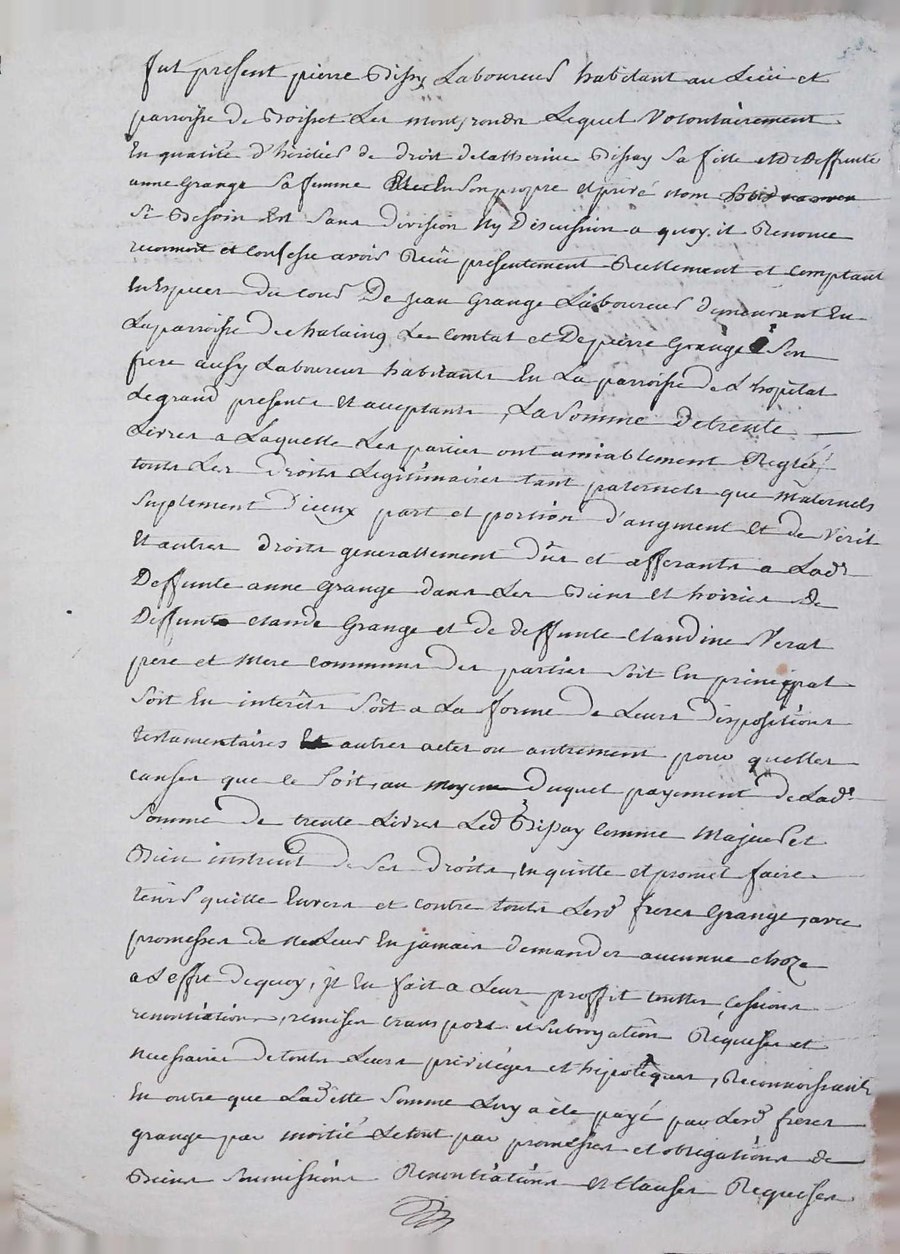 fut present pierre Bissay Laboureur habitant au Lieu et
parroisse de Boisset Les montrondn Lequel Volontairement
En qualité d'héritier de droit de Catherine Bissay sa fille et de deffunte
anne Grange sa femme Et En son propre et privé nom
Si Besoin Est sans division Ny Discussion a quoy il Renonce
reconnoit et Confesse avoir Reçû présentement Reellement et Comptant
En Especes du Cours De Jean Grange Laboureur demeurant En
La parroisse de Chalaing Le Comtat et De pierre Grange Son
frere aussy Laboureur habitants En La parroisse De L'hopital
Le grand presents Et acceptants, La Somme De trente
Livres a Laquelle Les parties ont amiablement Reglés
touts Les Droits Legitimaires tant paternels que Maternels
Suplement D'iceux part et portion d'augment Et de Verit
Et autres Droits generallement Dûs et afferants a Lad.
Deffunte anne Grange dans Les Biens Et hoiries de
Deffunt Claude Grange et de deffunte Claudine Verat
pere et Mere Communs des parties Soit En principal
Soit En interêts Soit a La forme de Leurs dispositions
testamentaires Et autres actes ou autrement pour quelles
Causes que Ce Soit, au moyen Duquel payement de Lad.
Somme De trente Livres Led. Bissay Comme Majeur et
Bien instruit de Ses Droits, En quitte et promet faire
tenir quitte Envers et Contre touts Lesd. freres Grange, avec
promesses de Ne Leur En jamais demander aucunne choze
a L'effet de quoy, il En fait a Leur proffit touttes Cessions
renontiations, remises transports et Subrogations Requises et
Necessaires de touts Leurs privilèges et hipoteques, Reconnoissant
En outre que Ladette Somme Luy a été payé par Lesd. freres
grange par moitié Le tout par promesses et obligations de
Biens Soumissions Renontiations Et Clauses Requises